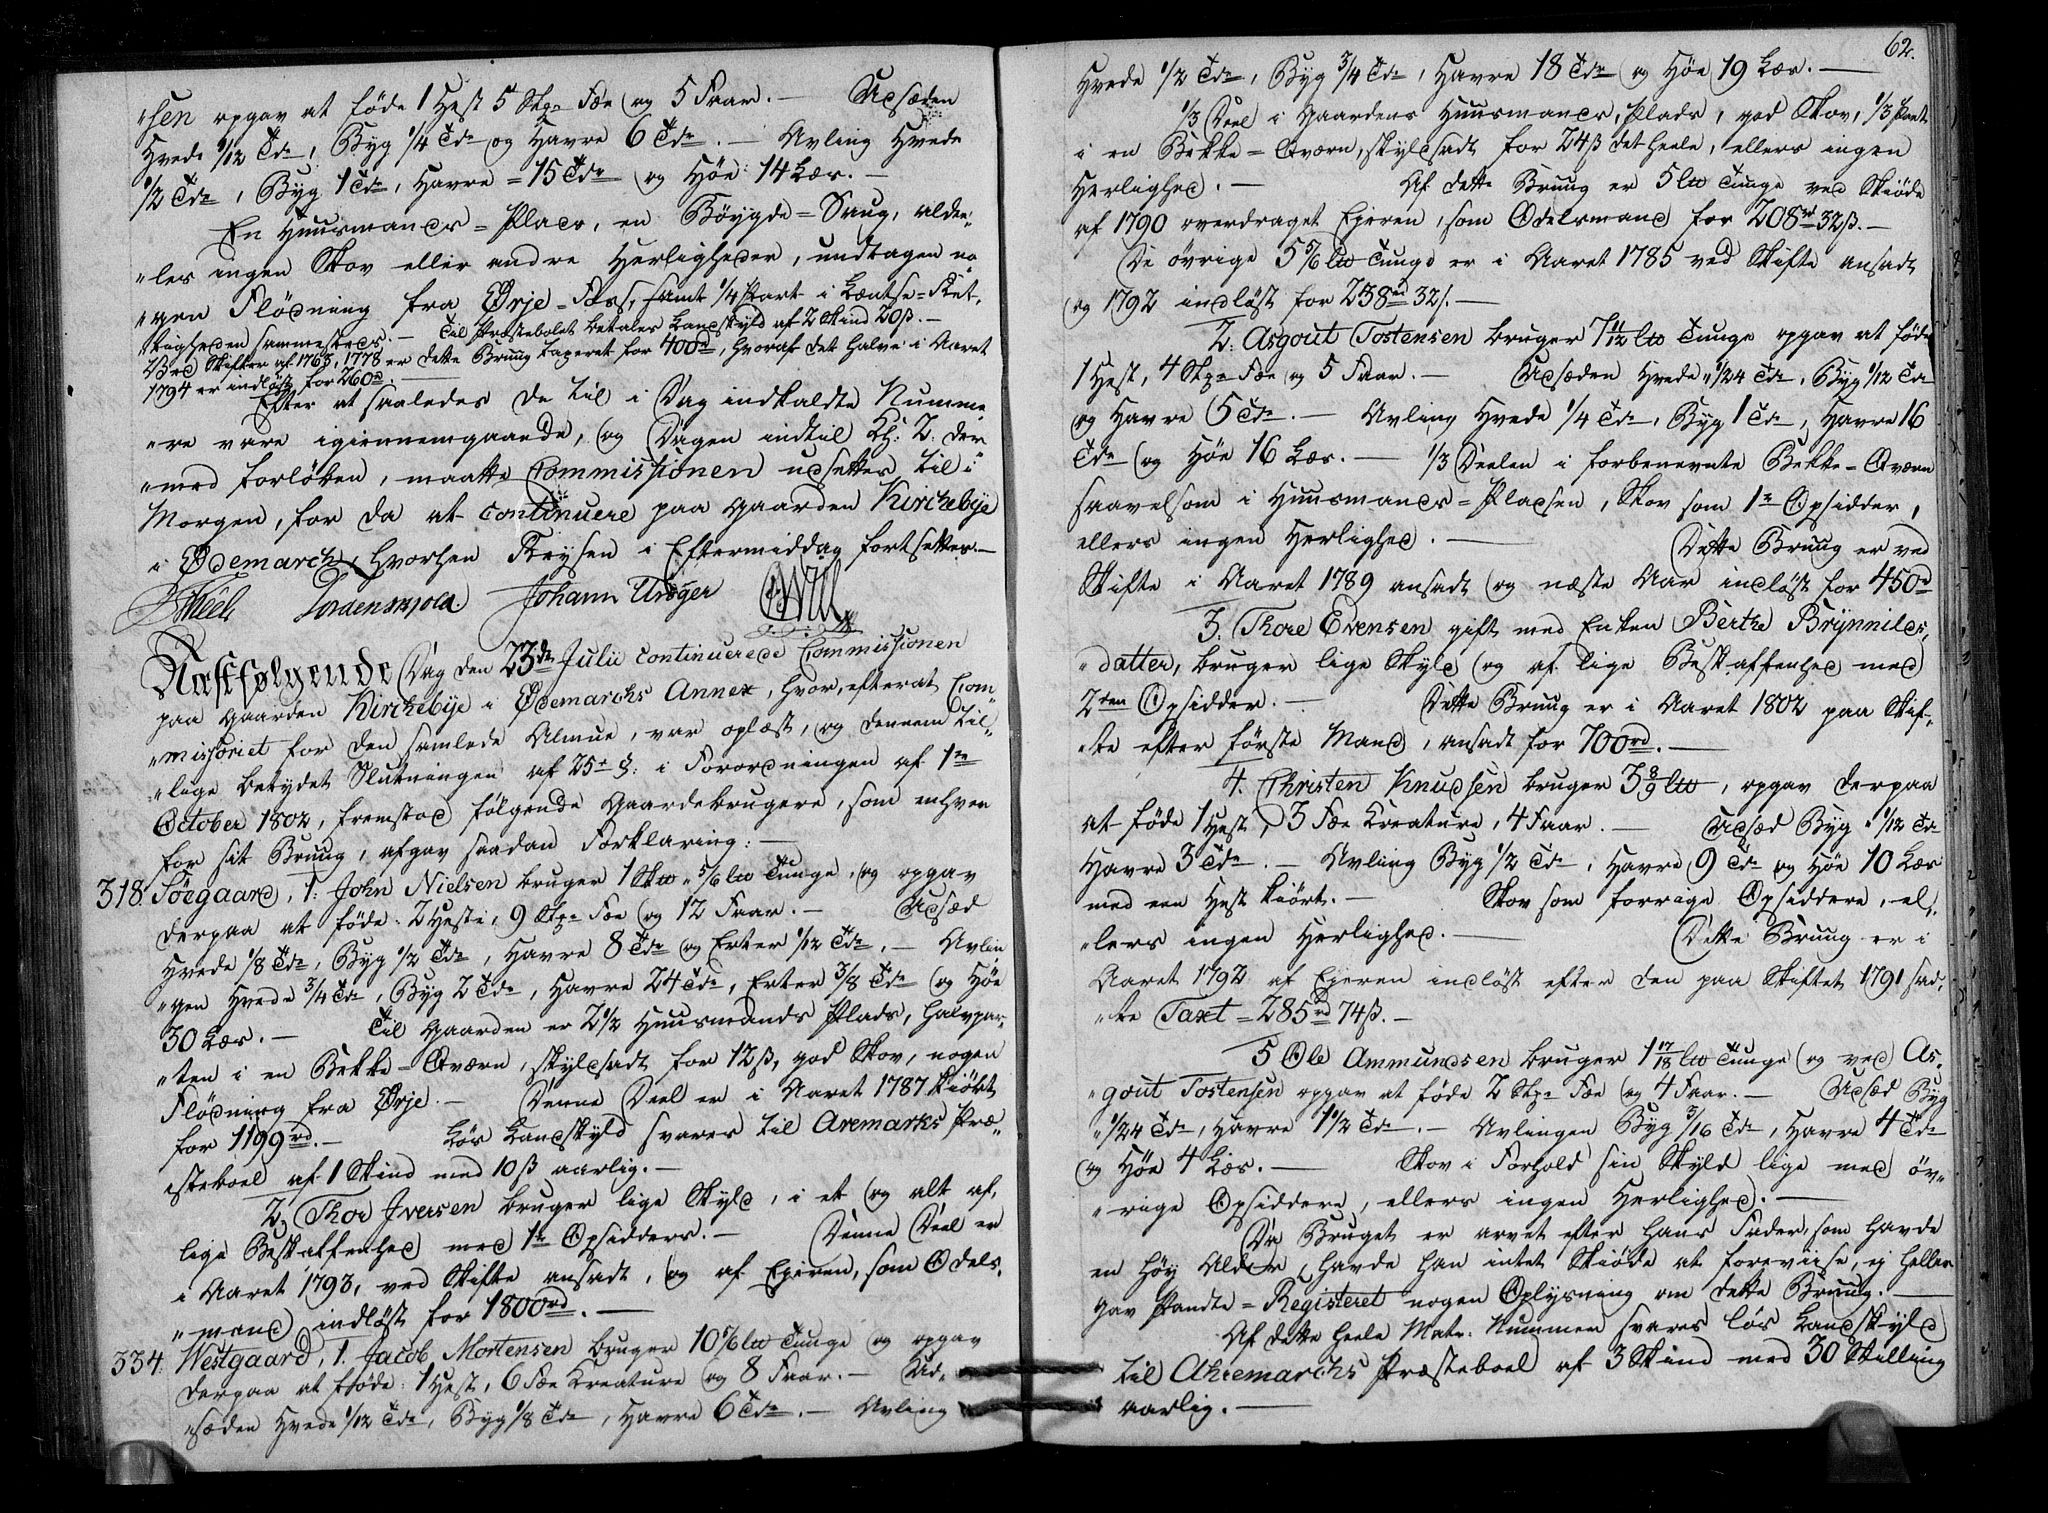 "sen opgav at föde 1 Hest 5 Stkr Fæe og 5 Faar. — Udsæden
Hvede 1/12 Tde, Byg 1/4 Tde og Havre 6 Tdr. — Avling Hvede
1/2 Tde, Byg 1 Tde, Havre = 15 Tdr og Höe 14 Læs. —
En Huusmands = Plads, en Böygde = Saug, alde„
„les ingen Skov eller andre Herligheder, undtagen no
„gen Flödning fra Ørje = Foss, samt 1/4 Part i
„tigheden sammesteds. — Til Præstebolet betales Landskyld af 2 Skind 20ß. —
Ved Skifter af 1763, 1778 er dette Bruug taxeret for 400rd, hvoraf det halve i Aaret
1794 er indlöst for 260rd
Efter at saaledes de til i Dag indkaldte Numme„
„re vare igiennemgaaede, og Dagen indtil Kl: 2 der
„med forlöben, maatte Commissionen udsettes til i
Morgen, for da at continuere paa Gaarden Kirckebÿe
i Ødemarck, hvorhen Reysen i Eftermiddag fortsettes. —
Tordenskjold. Johann Kröger
Næstfølgende Dag den 23de Julii continuerede Commissionen
paa Gaarden Kirckebÿe i Ødemarcks Annex, hvor, efterat Com„
„missoriet for den samlede Almue, var oplæst, og dennem til„
„lige betydet Slutningen af 25t §: i Forordningen af 1te
October 1802, fremstod fölgende Gaardebrugere, som enhver
for sit Bruug, afgav saadan Forklaring: —
318. Söegaard, 1. John Nielsen bruger 1 Skw 5/6 lw Tunge, og opgav
derpaa at föde: 2 Heste, 9 Stkr Fæe og 12 Faar. — Udsæd
Hvede 1/8 Tde, Byg 1/2 Tde, Havre 8 Tdr og Erter 1/12 Tde. — Avlin
„gen Hvede 3/4 Tde, Byg 2 Tdr, Havre 24 Tdr, Erter 3/8 Tde og Höe
30 Læs. — Til Gaarden er 2 1/2 Huusmands Plads, halvpar„
„ten i en Bekke = Qværn, skyldsadt for 12ß, god Skov, nogen
Flödning fra Ørje. — Denne Deel er i Aaret 1787 kiöbt
for 1199rd. — Lös Landskyld svares til Aremarks Præ„
„steboel af 1 Skind med 10ß aarlig. —
2, Thor Iversen bruger lige Skyld, i et og alt af,
lige Beskaffenhed med 1te Opsidders. — Denne Deel er
i Aaret 1793, ved Skifte ansadt, og af Ejeren, som Odels„
„mand indlöst for 1800rd. —
334. Westgaard, 1. Jacob Mortensen bruger 10 5/6 lw Tunge og opgav
derpaa at föde: 1 Hest, 6 Fæe Kreature og 8 Faar. — Ud„
„sæden Hvede 1/12 Tde, Byg 1/8 Tde, Havre 6 Tdr. — Avling
62.
Hvede 1/2 Tde, Byg 3/4 Tde, Havre 18 Tdr og Höe 19 Læs. —
1/3 Deel i Gaardens Huusmands, Plads, god Skov, 1/3 Part
i en Bekke = Qværn, skyldsadt for 24ß det heele, ellers ingen
Herlighed. — Af dette Bruug er 5 lw Tunge ved Skiöde
af 1790 overdraget Ejeren, som Odelsmand for 208rd 32ß. —
De övrige 5 5/6 lw Tunge er i Aaret 1785 ved Skifte ansadt
og 1792 indlöst for 238rd 32ß. —
2. Asgout Tostensen bruger 7 11/12 lw Tunge opgav at föde
1 Hest, 4 Stkr Fæe og 5 Faar. — Udsæden Hvede 1/24 Tde, Byg 1/12 Tde
og Havre 5 Tdr. — Avling Hvede 1/4 Tde, Byg 1 Tde, Havre 16
Tdr og Höe 16 Læs. — 1/3 Deelen i forbenevnte Bekke = Qværn
saavelsom i Huusmands = Pladsen, Skov som 1te Opsidder,
ellers ingen Herlighed. — Dette Bruug er ved
Skifte i Aaret 1789 ansadt og næste Aar indlöst for 450rd
3. Thore Evensen gift med Enken Berthe Brynnilds„
„datter, bruger lige Skyld og af lige Beskaffenhed med
2den Opsidder. — Dette Bruug er i Aaret 1802 paa Skif„
„te efter förste Mand, ansadt for 700rd. —
4. Christen Knudsen bruger 3 8/9 lw, opgav derpaa
at föde 1 Hest, 3 Fæe Kreature, 4 Faar. — Udsæd Byg 1/12 Tde
Havre 3 Tdr. — Avling Byg 1/2 Tde, Havre 9 Tdr og Höe 10 Læs
med een Hest kiört. — Skov som forrige Opsiddere, el„
„lers ingen Herlighed. — Dette Bruug er i
Aaret 1792 af Ejeren indlöst efter den paa Skiftet 1791 sad„
„te Taxt = 285rd 74ß. —
5 Ole Ammundsen bruger 1 17/18 lw Tunge og ved As„
„gout Tostensen opgav at föde 2 Stkr Fæe og 4 Faar. — Udsæd Byg
1/24 Tde, Havre 1 1/2 Tde. — Avlingen Byg 3/16 Tde, Havre 4 Tdr
og Höe 4 Læs. — Skov i Forhold sin Skyld lige med öv„
„rige Opsiddere, ellers ingen Herlighed. —
Da Bruget er arvet efter hans Fader, som havde
en höy Alder, havde han intet Skiöde at foreviise, ej heller
gav Pandte = Registeret nogen Oplysning om dette Bruug. —
Af dette heele Matr: Nummer svares lös Landskyld
til Ahremarchs Præsteboel af 3 Skind med 30 Skilling
aarlig. —